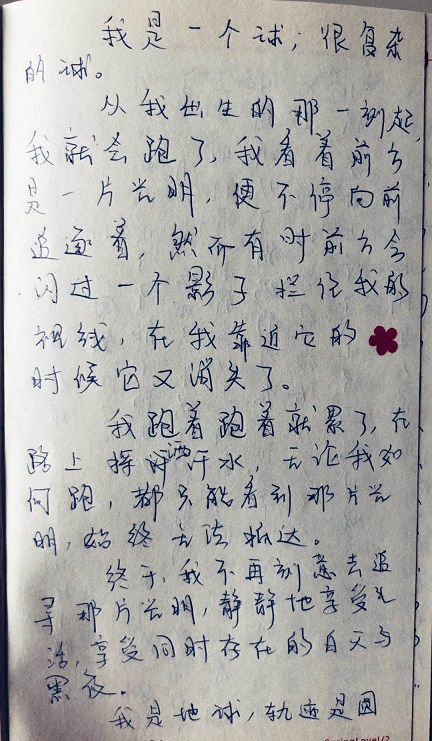 我是一个球，很复杂
的球。
从我出生的那一刻起，
我就会跑了，我看着前方
是一片光明，便不停向前
追逐着，然而有时前方会
闪过一个影子拦住我的
视线，在我靠近它的
时候它又消失了。
我跑着跑着就累了，在
路上挥洒汗水，无论我如
何跑，都只能看到那片光
明，始终无法抵达。
终于，我不再刻意去追
寻那片光明，静静地享受生
活，享受同时存在的白天与
黑夜。
我是地球，轨迹是圆